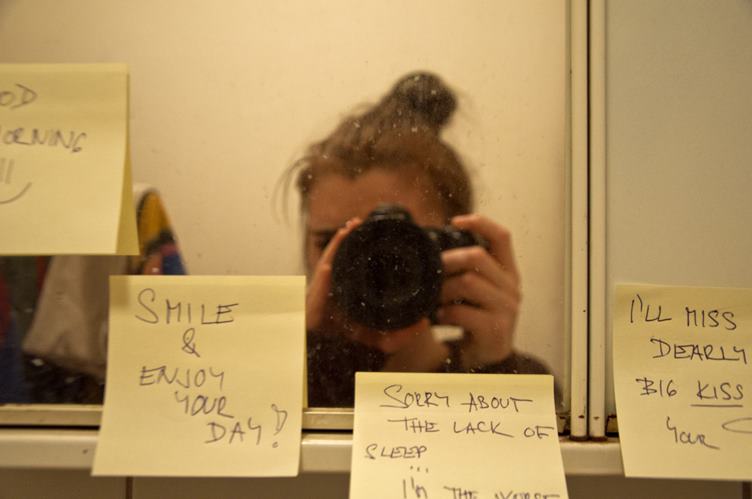 OD
ORNING
SMILE
&
ENJOY
YOUR
DAY!
SORRY ABOUT
THE LACK OF
SLEEP
...
I'M THE WORSE
I'LL MISS
DEARLY
BIG KISS
Your